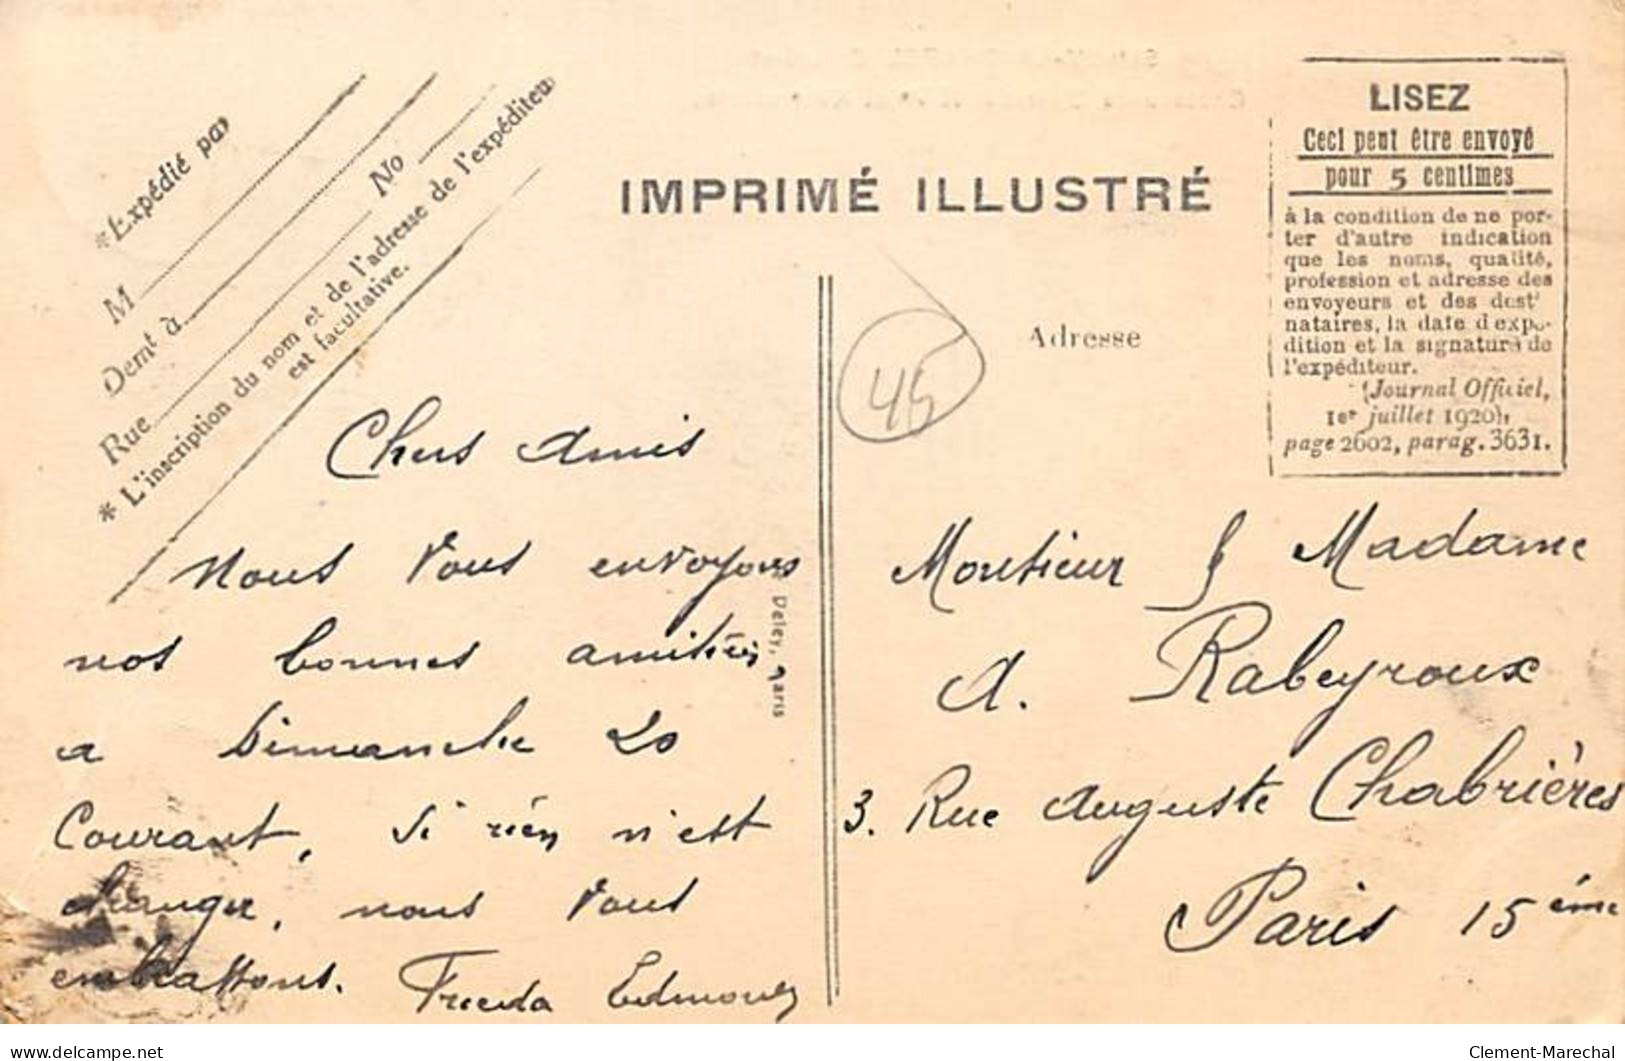 *Expédié par
M
Demt à
Rue No
* L'inscription du nom et de l'adresse de l'expéditeur
est facultative.
IMPRIMÉ ILLUSTRÉ
LISEZ
Ceci peut être envoyé
pour 5 centimes
à la condition de ne por-
ter d'autre indication
que les noms, qualité,
profession et adresse des
envoyeurs et des dest
nataires, la date d'expé-
dition et la signature de
l'expéditeur.
(Journal Officiel,
1er juillet 1920),
page 2602, parag. 3631.
Adresse
45
Chers Amis
Nous vous envoyons
nos bonnes amitiés
a Dimanche 20
Courant, si rien n'est
changer, nous vous
embrassons. Frieda Edmond
Deley, Paris
Monsieur & Madame
A. Rabeyroux
3. Rue Auguste Chabrières
Paris 15ème
delcampe.net
Clement-Marechal